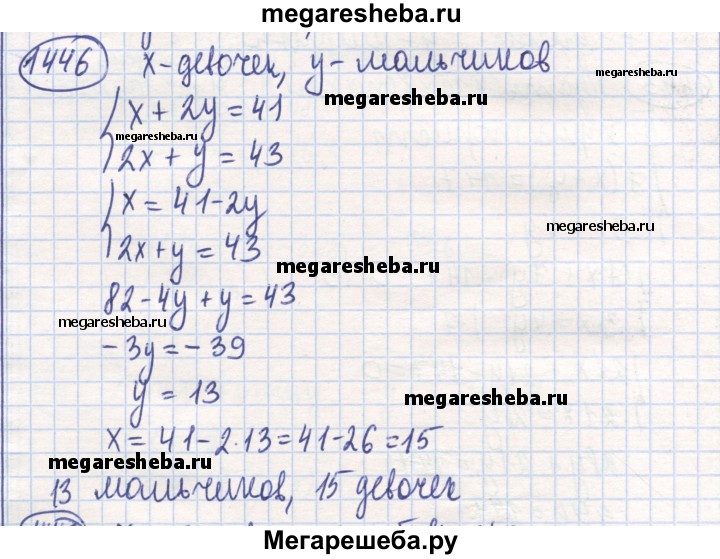 megaresheba.ru
1446 x - девочек, y - мальчиков
megaresheba.ru
x + 2y = 41
megaresheba.ru
megaresheba.ru
2x + y = 43
x = 41 - 2y
megaresheba.ru
2x + y = 43
megaresheba.ru
82 - 4y + y = 43
megaresheba.ru
- 3y = - 39
y = 13
megaresheba.ru
x = 41 - 2·13 = 41 - 26 = 15
megaresheba.ru
13 мальчиков, 15 девочек
Мегарешеба.ру